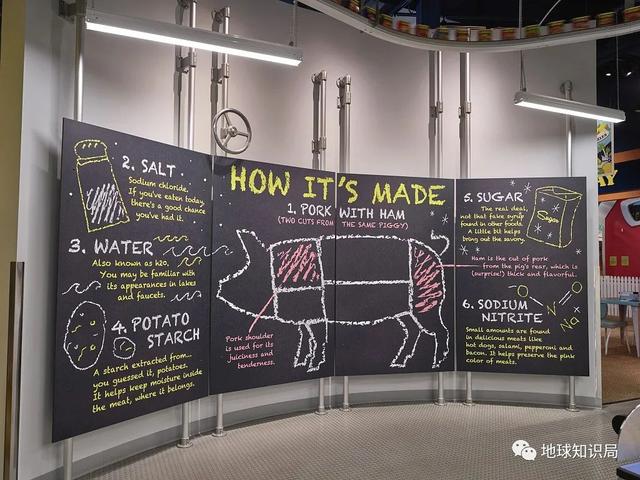 HOW IT'S MADE
1. PORK WITH HAM
(TWO CUTS FROM THE SAME PIGGY)
Pork shoulder
is used for its
juiciness and
tenderness.
2. SALT
Sodium chloride.
If you've eaten today,
there's a good chance
you've had it.
3. WATER
Also known as h2o.
You may be familiar with
its appearances in lakes
and faucets.
4. POTATO
STARCH
A starch extracted from...
you guessed it, potatoes.
It helps keep moisture inside
the meat, where it belongs.
5. SUGAR
The real deal,
not that fake syrup
found in other foods.
A little bit helps
bring out the savory.
Sugar
Ham is the cut of pork
from the pig's rear, which is
(surprise!) thick and flavorful.
6. SODIUM
NITRITE
Small amounts are found
in delicious meats like
hot dogs, salami, pepperoni and
bacon. It helps preserve the pink
color of meats.
O N O
Na
地球知识局